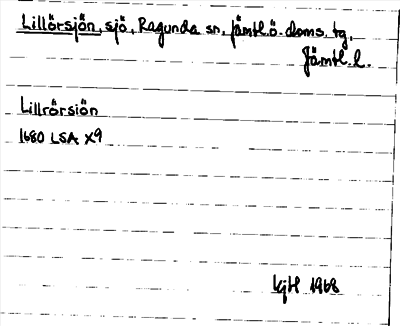 Lillörsjön, sjö, Ragunda sn, Jämtl.ö. doms. tg.
Jämtl. l.
Lillrörsiön
1680 LSA X9
KjH 1968